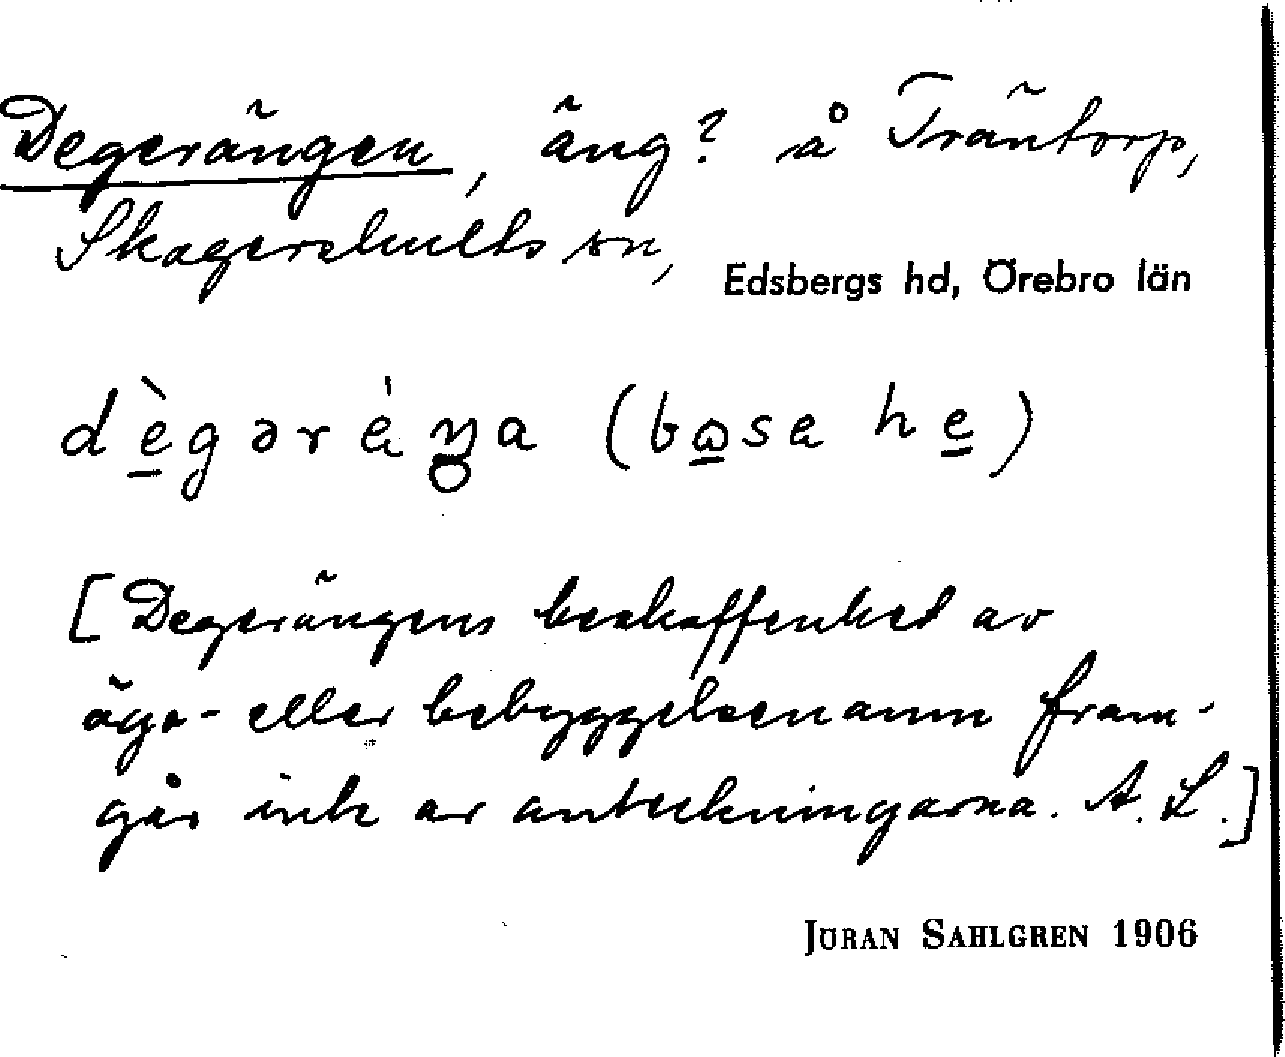 Degerängen, äng? å Träntorp,
Skagershults sn,
Edsbergs hd, Örebro län
dègəräŋa (bo̱sa he̱)
[Degerängens beskaffenhet av
ägo- eller bebyggelsenamn fram-
går inte av anteckningarna. A. L.]
JÖRAN SAHLGREN 1906